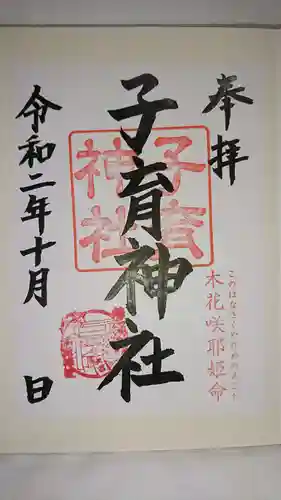 奉拝
木花咲耶姫命
このはなさくやひめのみこと
子育神社
子育神社
令和二年十月 日